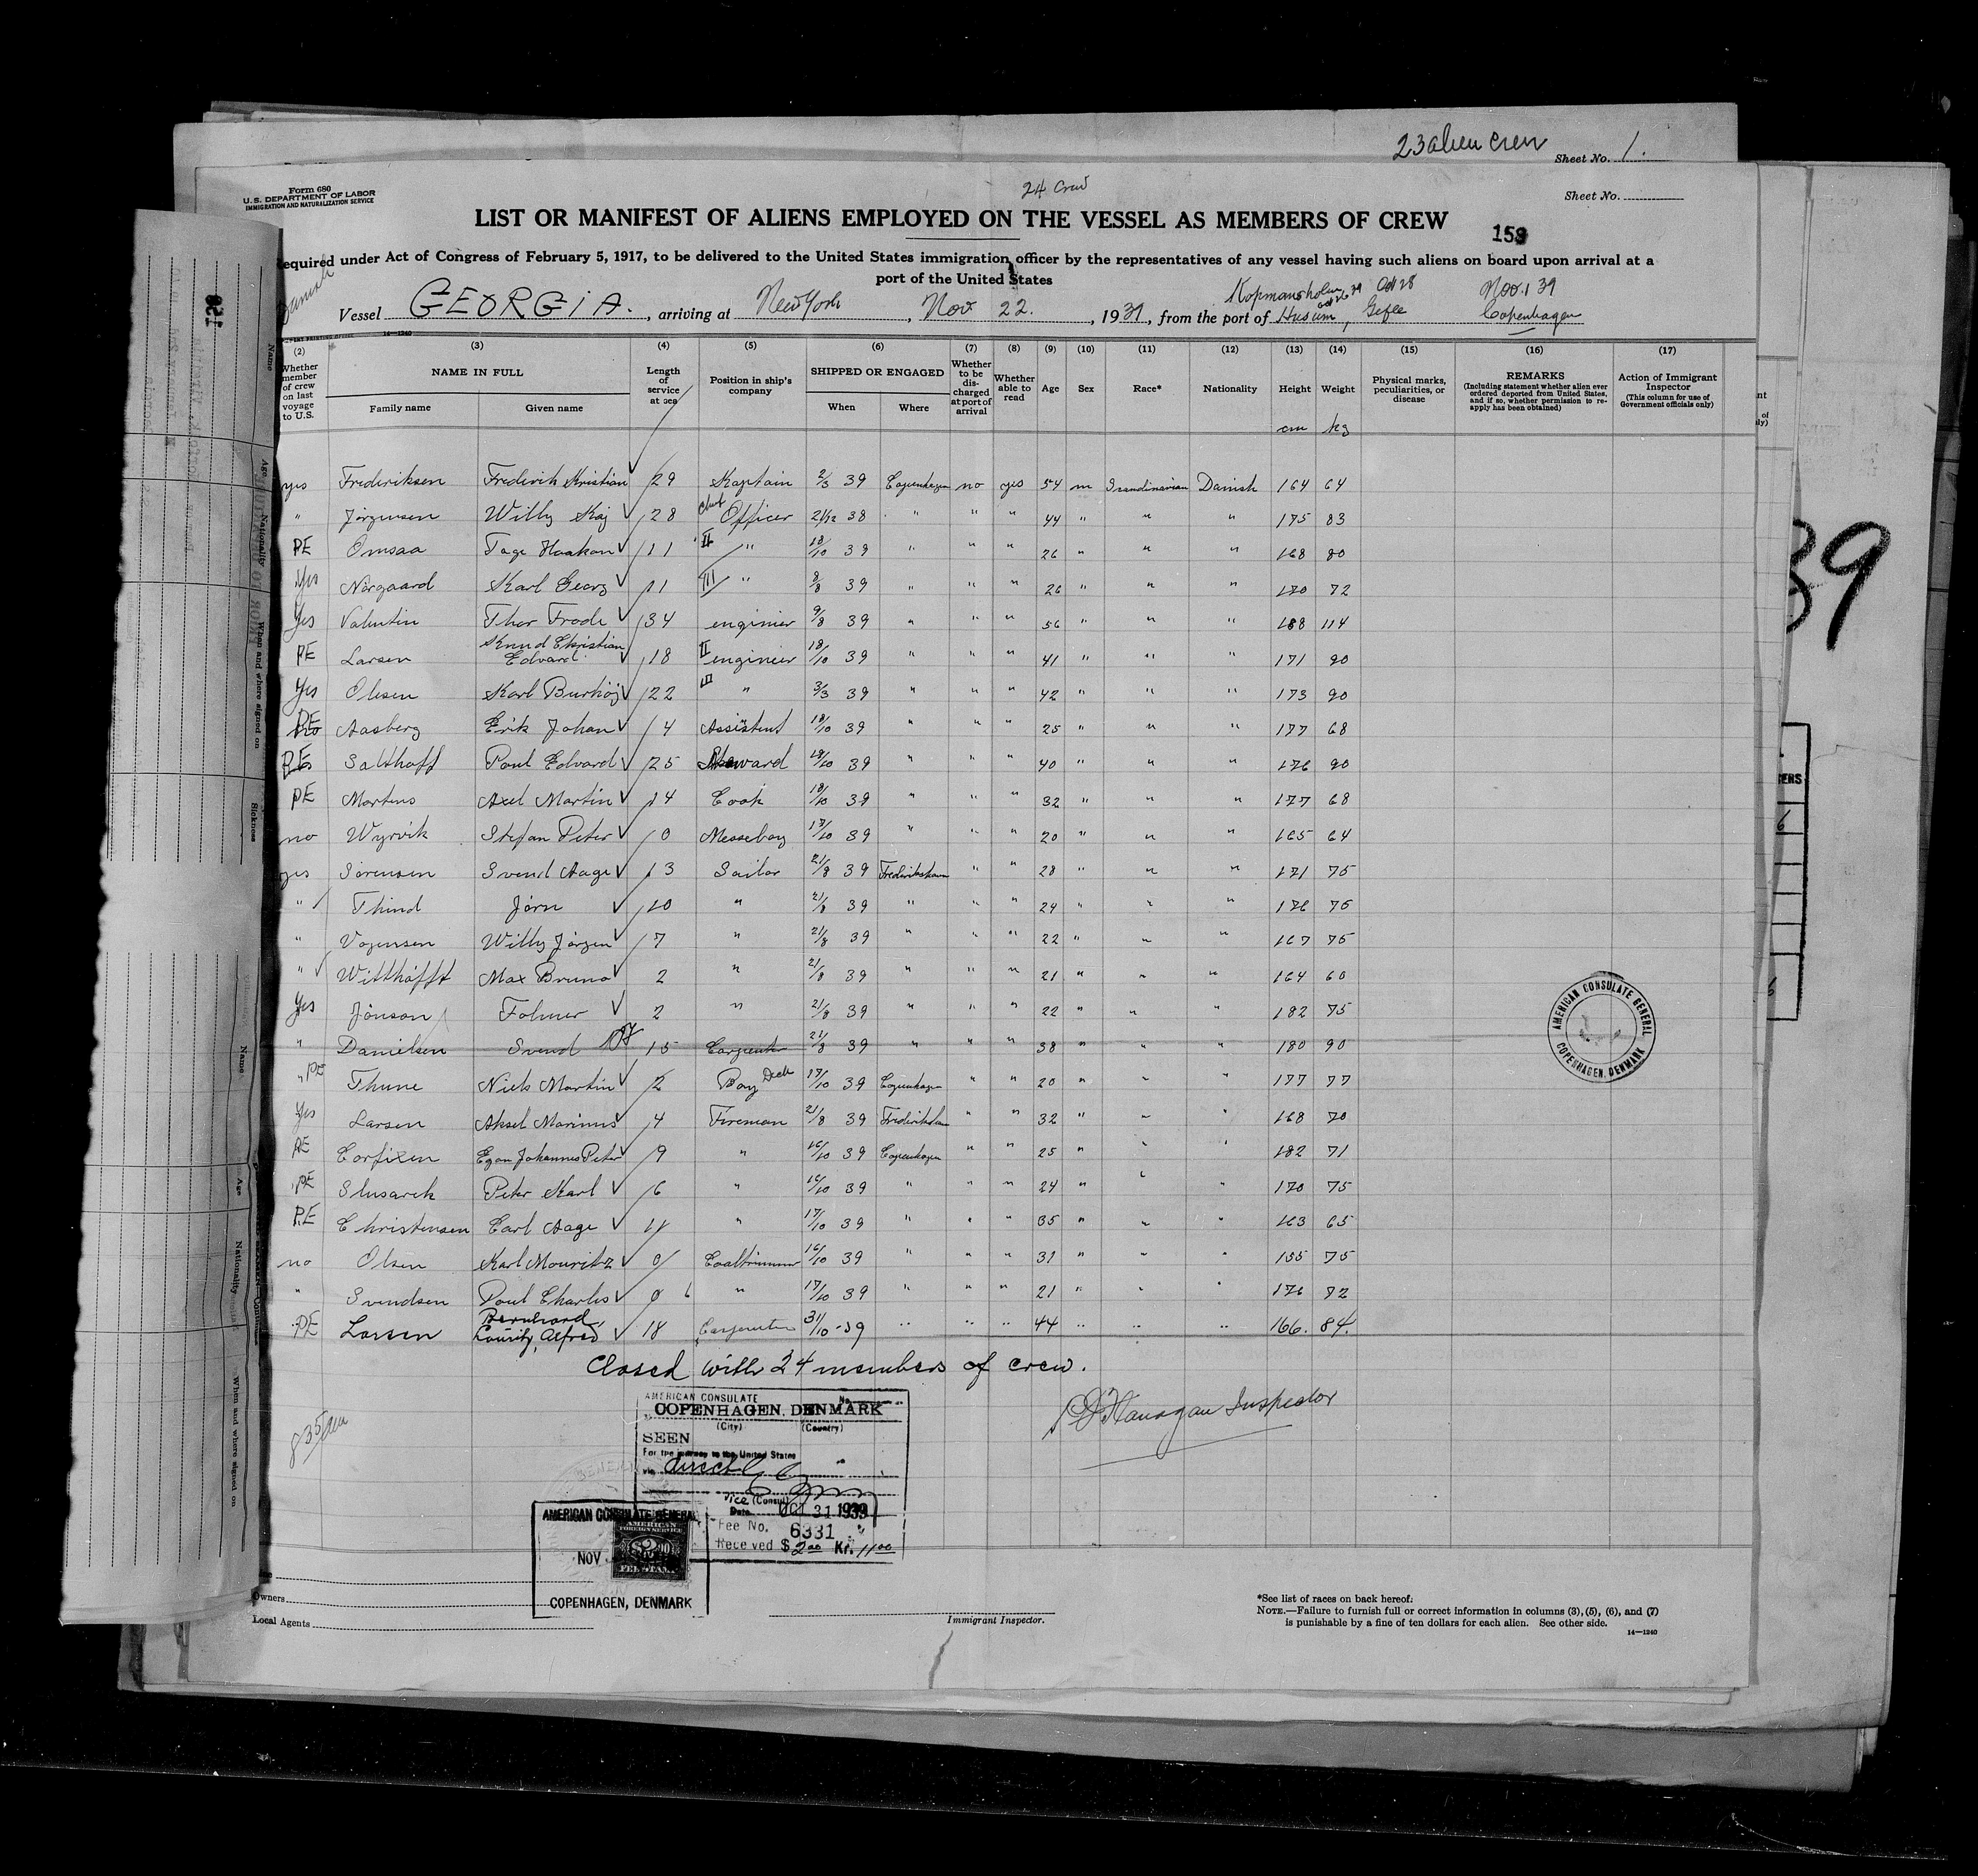 23 alien crew Sheet No. 1.
Form 680
U.S. DEPARTMENT OF LABOR
IMMIGRATION AND NATURALIZATION SERVICE
24 Crew
Sheet No.
LIST OR MANIFEST OF ALIENS EMPLOYED ON THE VESSEL AS MEMBERS OF CREW
159
Required under Act of Congress of February 5, 1917, to be delivered to the United States immigration officer by the representatives of any vessel having such aliens on board upon arrival at a
port of the United States
Danish
Kopmansholm Oct 28 Nov. 1 39
Vessel GEORGIA., arriving at New York, Nov 22., 1939, from the port of Husum, Gefle Copenhagen
14—1240
(2) (3) (4) (5) (6) (7) (8) (9) (10) (11) (12) (13) (14) (15) (16) (17)
Whether member of crew on last voyage to U.S. NAME IN FULL Length of service at sea Position in ship's company SHIPPED OR ENGAGED Whether to be discharged at port of arrival Whether able to read Age Sex Race* Nationality Height Weight Physical marks, peculiarities, or disease REMARKS (Including statement whether alien ever ordered deported from United States, and if so, whether permission to reapply has been obtained) Action of Immigrant Inspector (This column for use of Government officials only)
Family name Given name When Where
cm kg
yes Frederiksen Frederik Kristian 29 Kaptain 2/3 39 Copenhagen no yes 54 m Scandinavian Danish 164 64
" Jörgensen Willy Kaj 28 chief Officer 21/12 38 " " " 44 " " " 175 83
PE Omsaa Tage Haakon 11 II " 18/10 39 " " " 26 " " " 168 80
Yes Nörgaard Karl Georg 11 III " 8/8 39 " " " 26 " " " 170 72
Yes Valentin Thor Frode 34 enginier 9/8 39 " " " 56 " " " 188 114
PE Larsen Knud Christian Edvard 18 II enginier 18/10 39 " " " 41 " " " 171 90
Yes Olesen Karl Burhöj 22 " 3/3 39 " " " 42 " " " 173 90
PE Aasberg Erik Johan 4 Assistent 18/10 39 " " " 25 " " " 177 68
PE Salthoff Poul Edvard 25 Steward 18/10 39 " " " 40 " " " 176 90
PE Martens Axel Martin 14 Cook 18/10 39 " " " 32 " " " 177 68
no Wyrvik Stefan Peter 0 Messeboy 17/10 39 " " " 20 " " " 165 64
yes Sörensen Svend Aage 13 Sailor 21/8 39 Frederikshavn " " 28 " " " 171 75
" Thind Jörn 10 " 21/8 39 " " " 24 " " " 176 75
" Vogensen Willy Jörgen 7 " 21/8 39 " " " 22 " " " 167 75
" Witthöfft Max Bruno 2 " 21/8 39 " " " 21 " " " 164 60
Yes Jönson Folmer 2 " 21/8 39 " " " 22 " " " 182 75
" Danielsen Svend 15 Carpenter 21/8 39 " " " 38 " " " 180 90
" PE Thune Niels Martin 2 Deck Boy 17/10 39 Copenhagen " " 20 " " " 177 77
Yes Larsen Aksel Marinus 4 Fireman 21/8 39 Frederikshavn " " 32 " " " 168 70
PE Corfixen Egon Johannes Peter 9 " 16/10 39 Copenhagen " " 25 " " " 182 71
PE Slusarek Peter Karl 6 " 16/10 39 " " " 24 " " " 170 75
P.E Christensen Carl Aage 11 " 17/10 39 " " " 35 " " " 163 65
no Olsen Karl Mouritz 0 Coaltrimmer 16/10 39 " " " 31 " " " 155 75
" Svendsen Poul Charles 0 6 " 17/10 39 " " " 21 " " " 176 72
PE Larsen Bernhard Louritz, Alfred 18 Carpenter 31/10 -39 " " " 44 " " " 166. 84.
Closed with 24 members of crew.
Flanagan Inspector
835 am
AMERICAN CONSULATE GENERAL
COPENHAGEN, DENMARK
AMERICAN CONSULATE No.
COPENHAGEN, DENMARK
(City) (Country)
SEEN
For the journey to the United States
via direct
Vice (Consul)
Date OCT 31 1939
Fee No. 6331
Received $ 2.00 Kr. 11.00
AMERICAN CONSULATE GENERAL
AMERICAN
FOREIGN SERVICE
$2.00
FEE STAMP
NOV
COPENHAGEN, DENMARK
Owners
Local Agents
Immigrant Inspector.
*See list of races on back hereof.
NOTE.—Failure to furnish full or correct information in columns (3), (5), (6), and (7)
is punishable by a fine of ten dollars for each alien. See other side.
14—1240
39